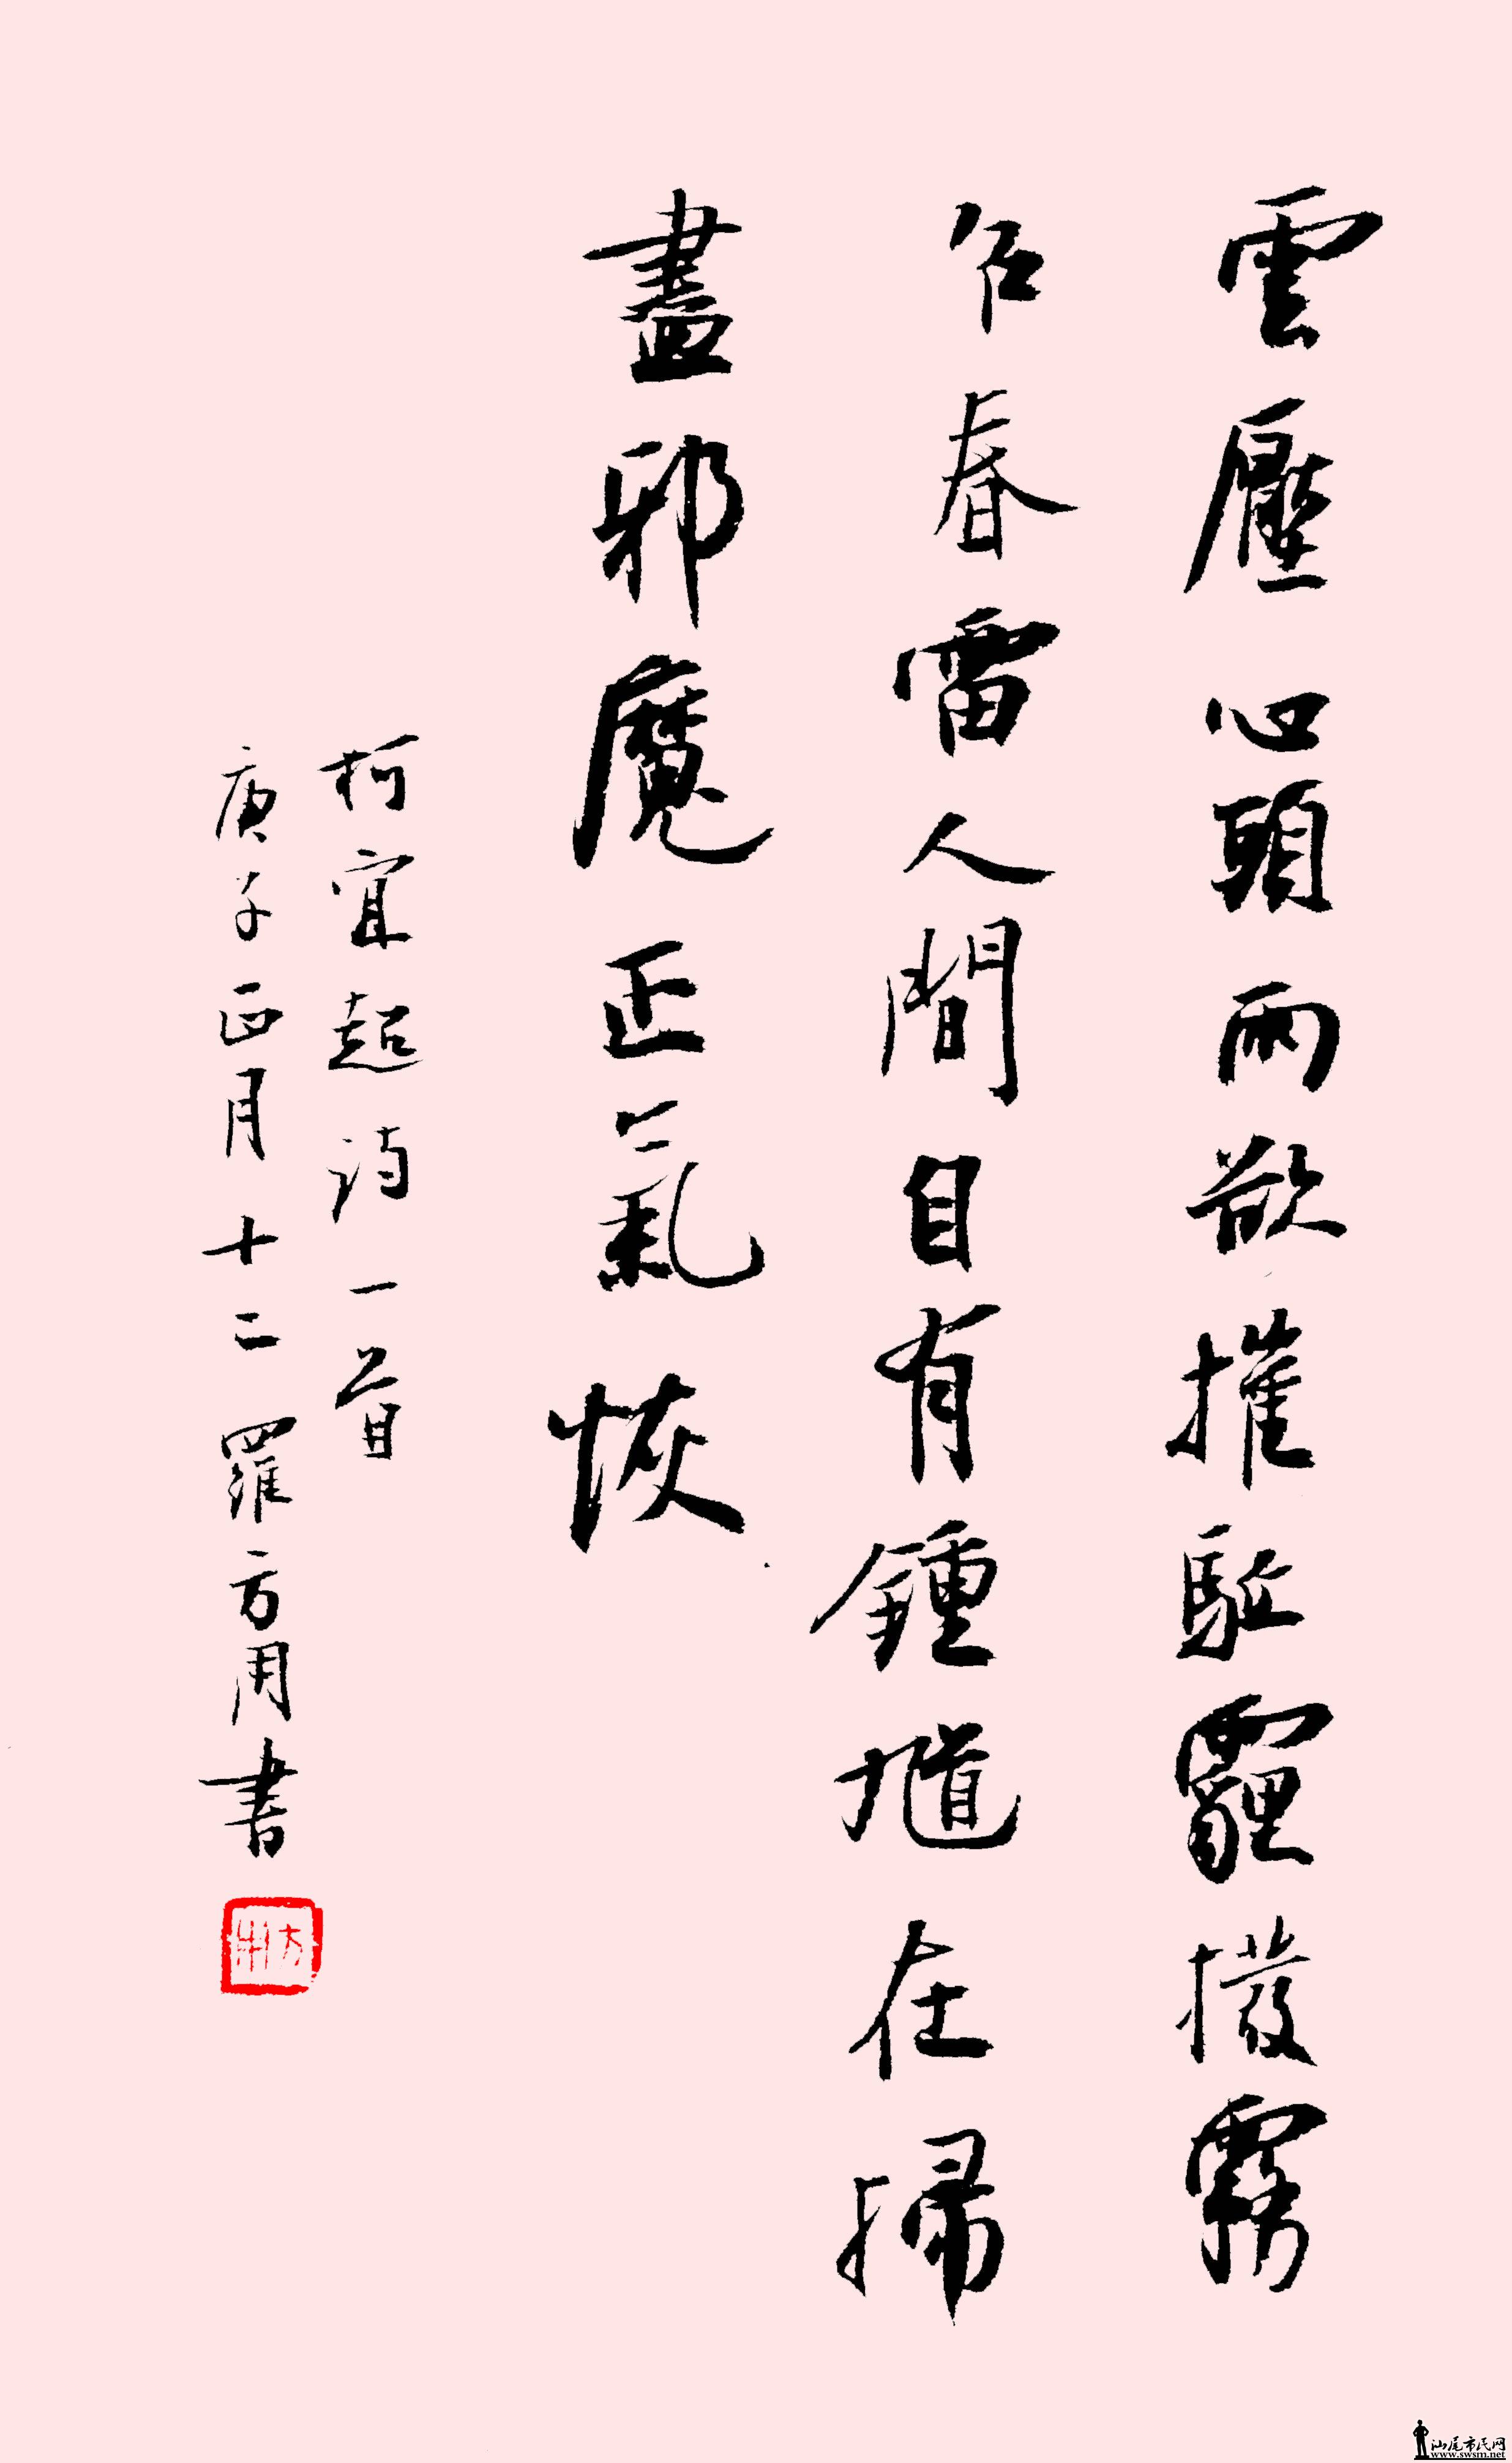 雲壓心頭雨欲摧駈霾撥霧
召春雷人間自有鍾馗在掃
盡邪魔正氣恢
柯宜超詩一首
庚子正月十二羅方用書
方用
汕尾市民网
www.swsm.net